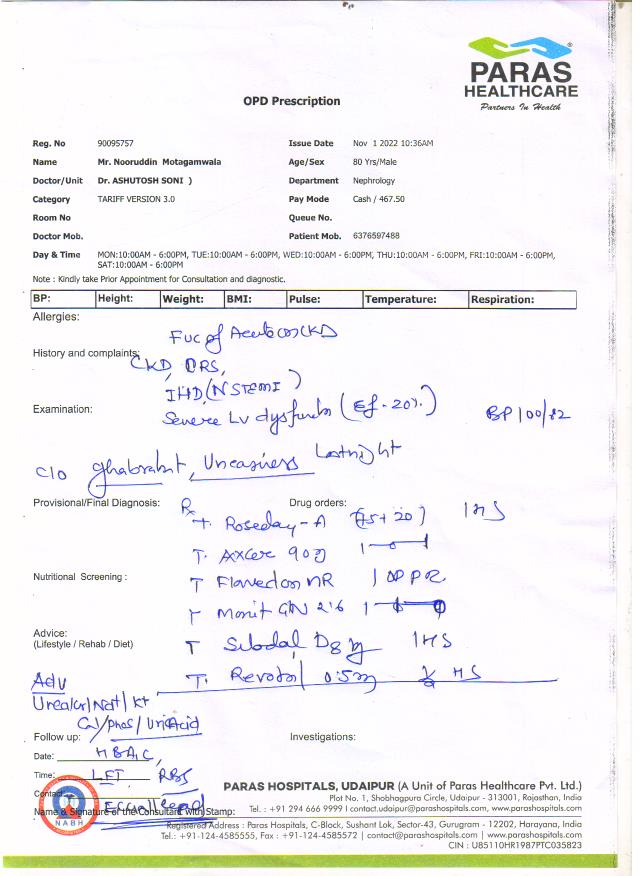 PARAS
HEALTHCARE
Partners In Health
OPD Prescription
Reg. No 90095757 Issue Date Nov 1 2022 10:36AM
Name Mr. Nooruddin Motagamwala Age/Sex 80 Yrs/Male
Doctor/Unit Dr. ASHUTOSH SONI ) Department Nephrology
Category TARIFF VERSION 3.0 Pay Mode Cash / 467.50
Room No Queue No.
Doctor Mob. Patient Mob. 6376597488
Day & Time MON:10:00AM - 6:00PM, TUE:10:00AM - 6:00PM, WED:10:00AM - 6:00PM, THU:10:00AM - 6:00PM, FRI:10:00AM - 6:00PM,
SAT:10:00AM - 6:00PM
Note : Kindly take Prior Appointment for Consultation and diagnostic.
BP: Height: Weight: BMI: Pulse: Temperature: Respiration:
Allergies:
Fuc of Acute on CKD
History and complaints:
CKD, DRS,
IHD (NSTEMI)
Examination:
Severe LV dysfunctn (Ef-20%) BP 100/82
C/O ghabrahat, Uneasiness Last night
Provisional/Final Diagnosis: Rx Drug orders:
T. Roseday-A (75+20) 1 HS
T. Axcer 90 1-0-1
Nutritional Screening :
T Flavedon MR
T Monit GTN 2.6
Advice:
(Lifestyle / Rehab / Diet)
T D8 1 HS
Adv T. 0.5 ½ HS
Urea/Cr/Na+/K+
Ca/Phos/Uric Acid
Follow up: Investigations:
Date: HBA1C,
Time: LFT RBS
Contact:
ECG all lead
Name & Signature of the Consultant with Stamp:
NABH
PARAS HOSPITALS, UDAIPUR (A Unit of Paras Healthcare Pvt. Ltd.)
Plot No. 1, Shobhagpura Circle, Udaipur - 313001, Rajasthan, India
Tel. : +91 294 666 9999 | contact.udaipur@parashospitals.com, www.parashospitals.com
Registered Address : Paras Hospitals, C-Block, Sushant Lok, Sector-43, Gurugram - 12202, Harayana, India
Tel.: +91-124-4585555, Fax : +91-124-4585572 | contact@parashospitals.com | www.parashospitals.com
CIN : U85110HR1987PTC035823